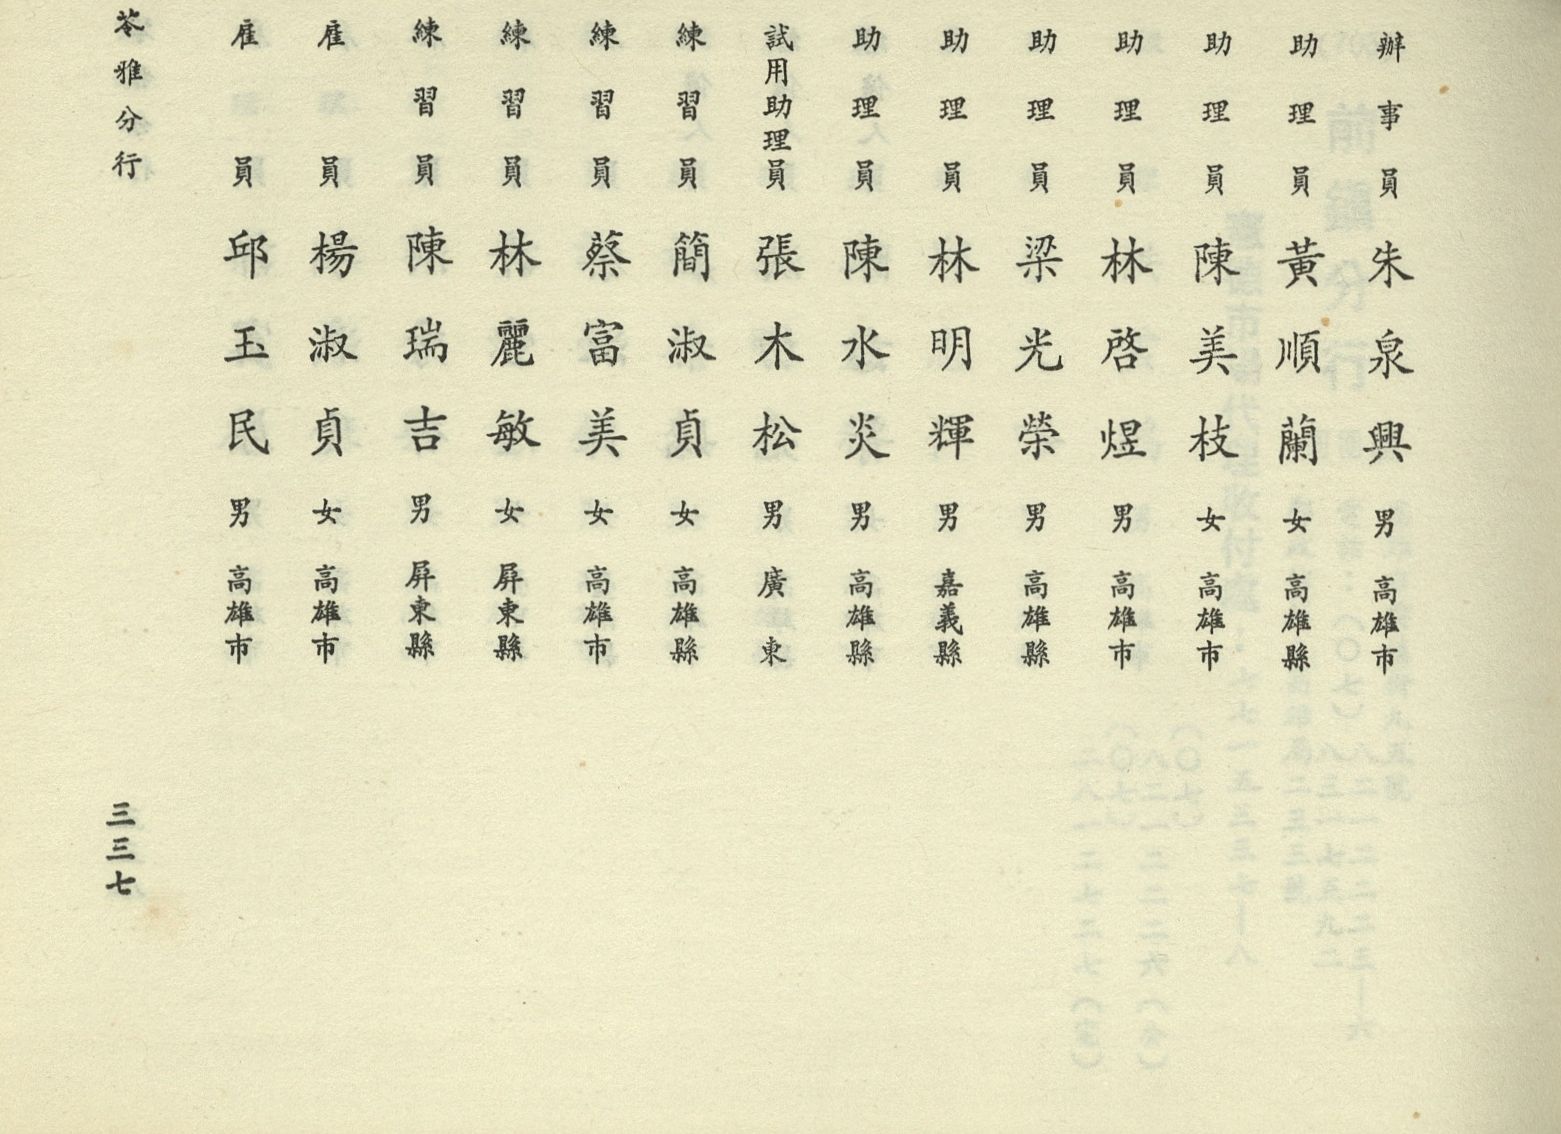 辦事員 朱泉興 男 高雄市
助理員 黃順蘭 女 高雄縣
助理員 陳美枝 女 高雄市
助理員 林啓煜 男 高雄市
助理員 梁光榮 男 高雄縣
助理員 林明輝 男 嘉義縣
助理員 陳水炎 男 高雄縣
試用助理員 張木松 男 廣東
練習員 簡淑貞 女 高雄縣
練習員 蔡富美 女 高雄市
練習員 林麗敏 女 屏東縣
練習員 陳瑞吉 男 屏東縣
雇員 楊淑貞 女 高雄市
雇員 邱玉民 男 高雄市
苓雅分行
三三七